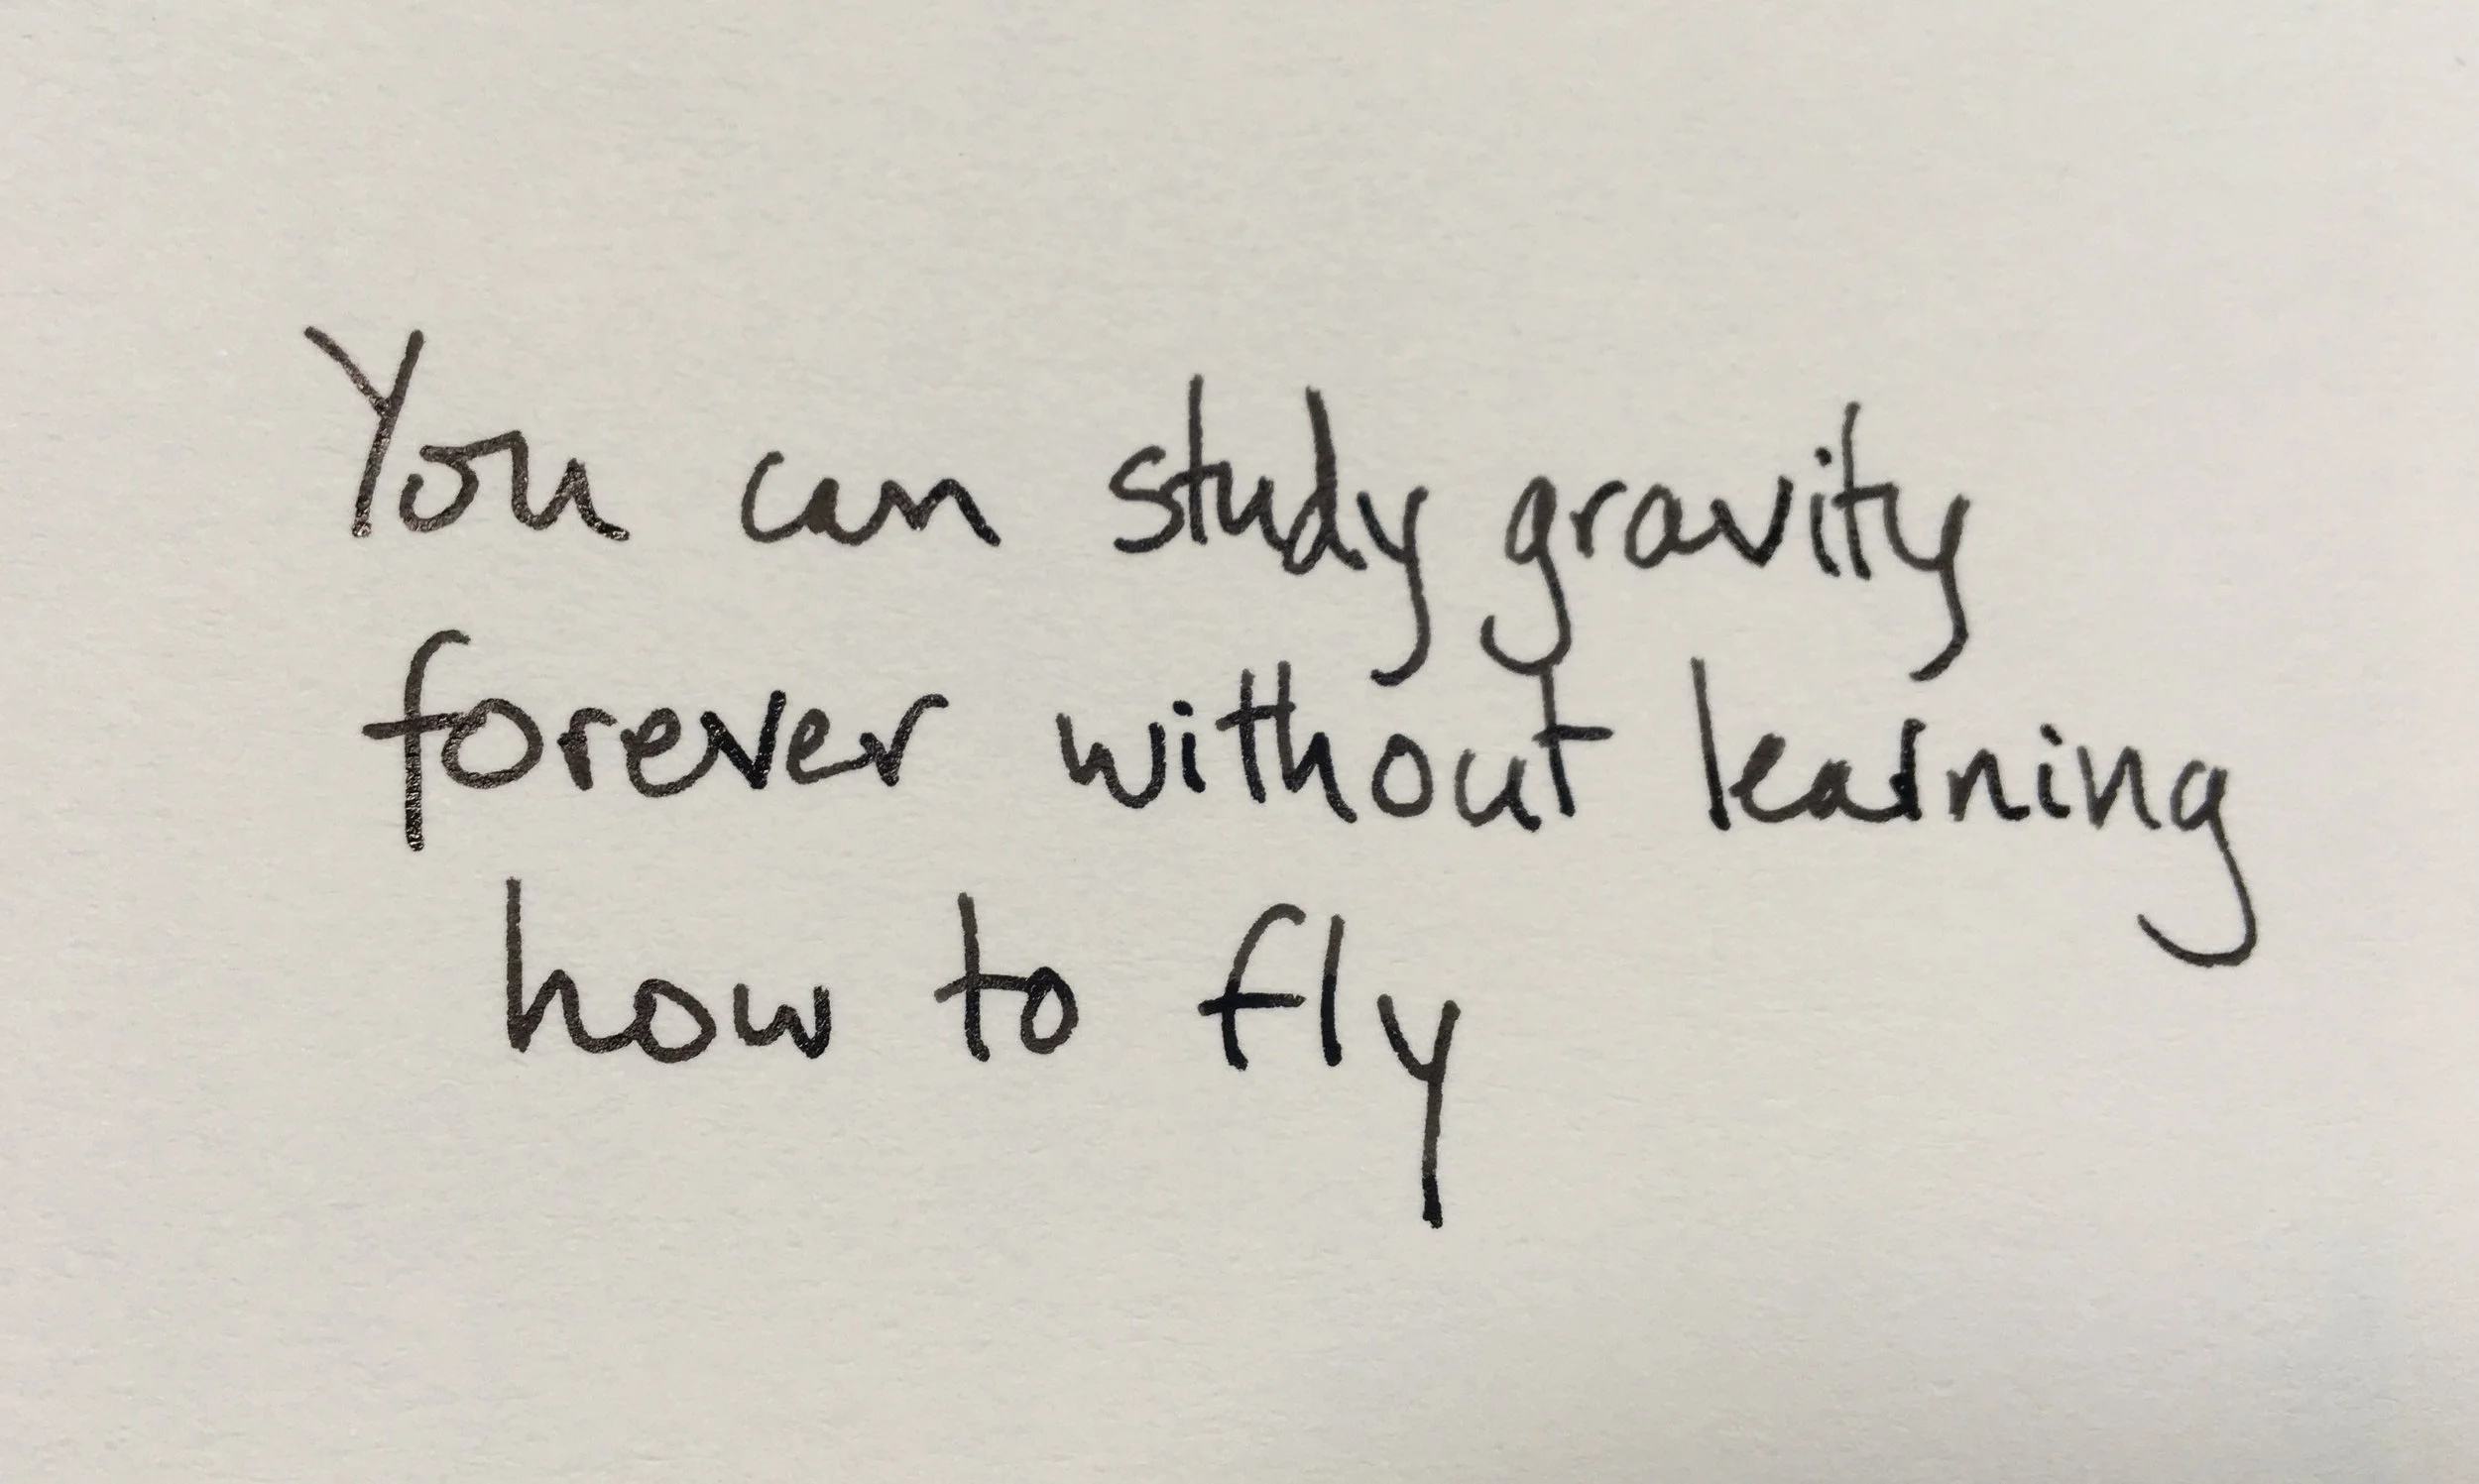 You can study gravity
forever without learning
how to fly